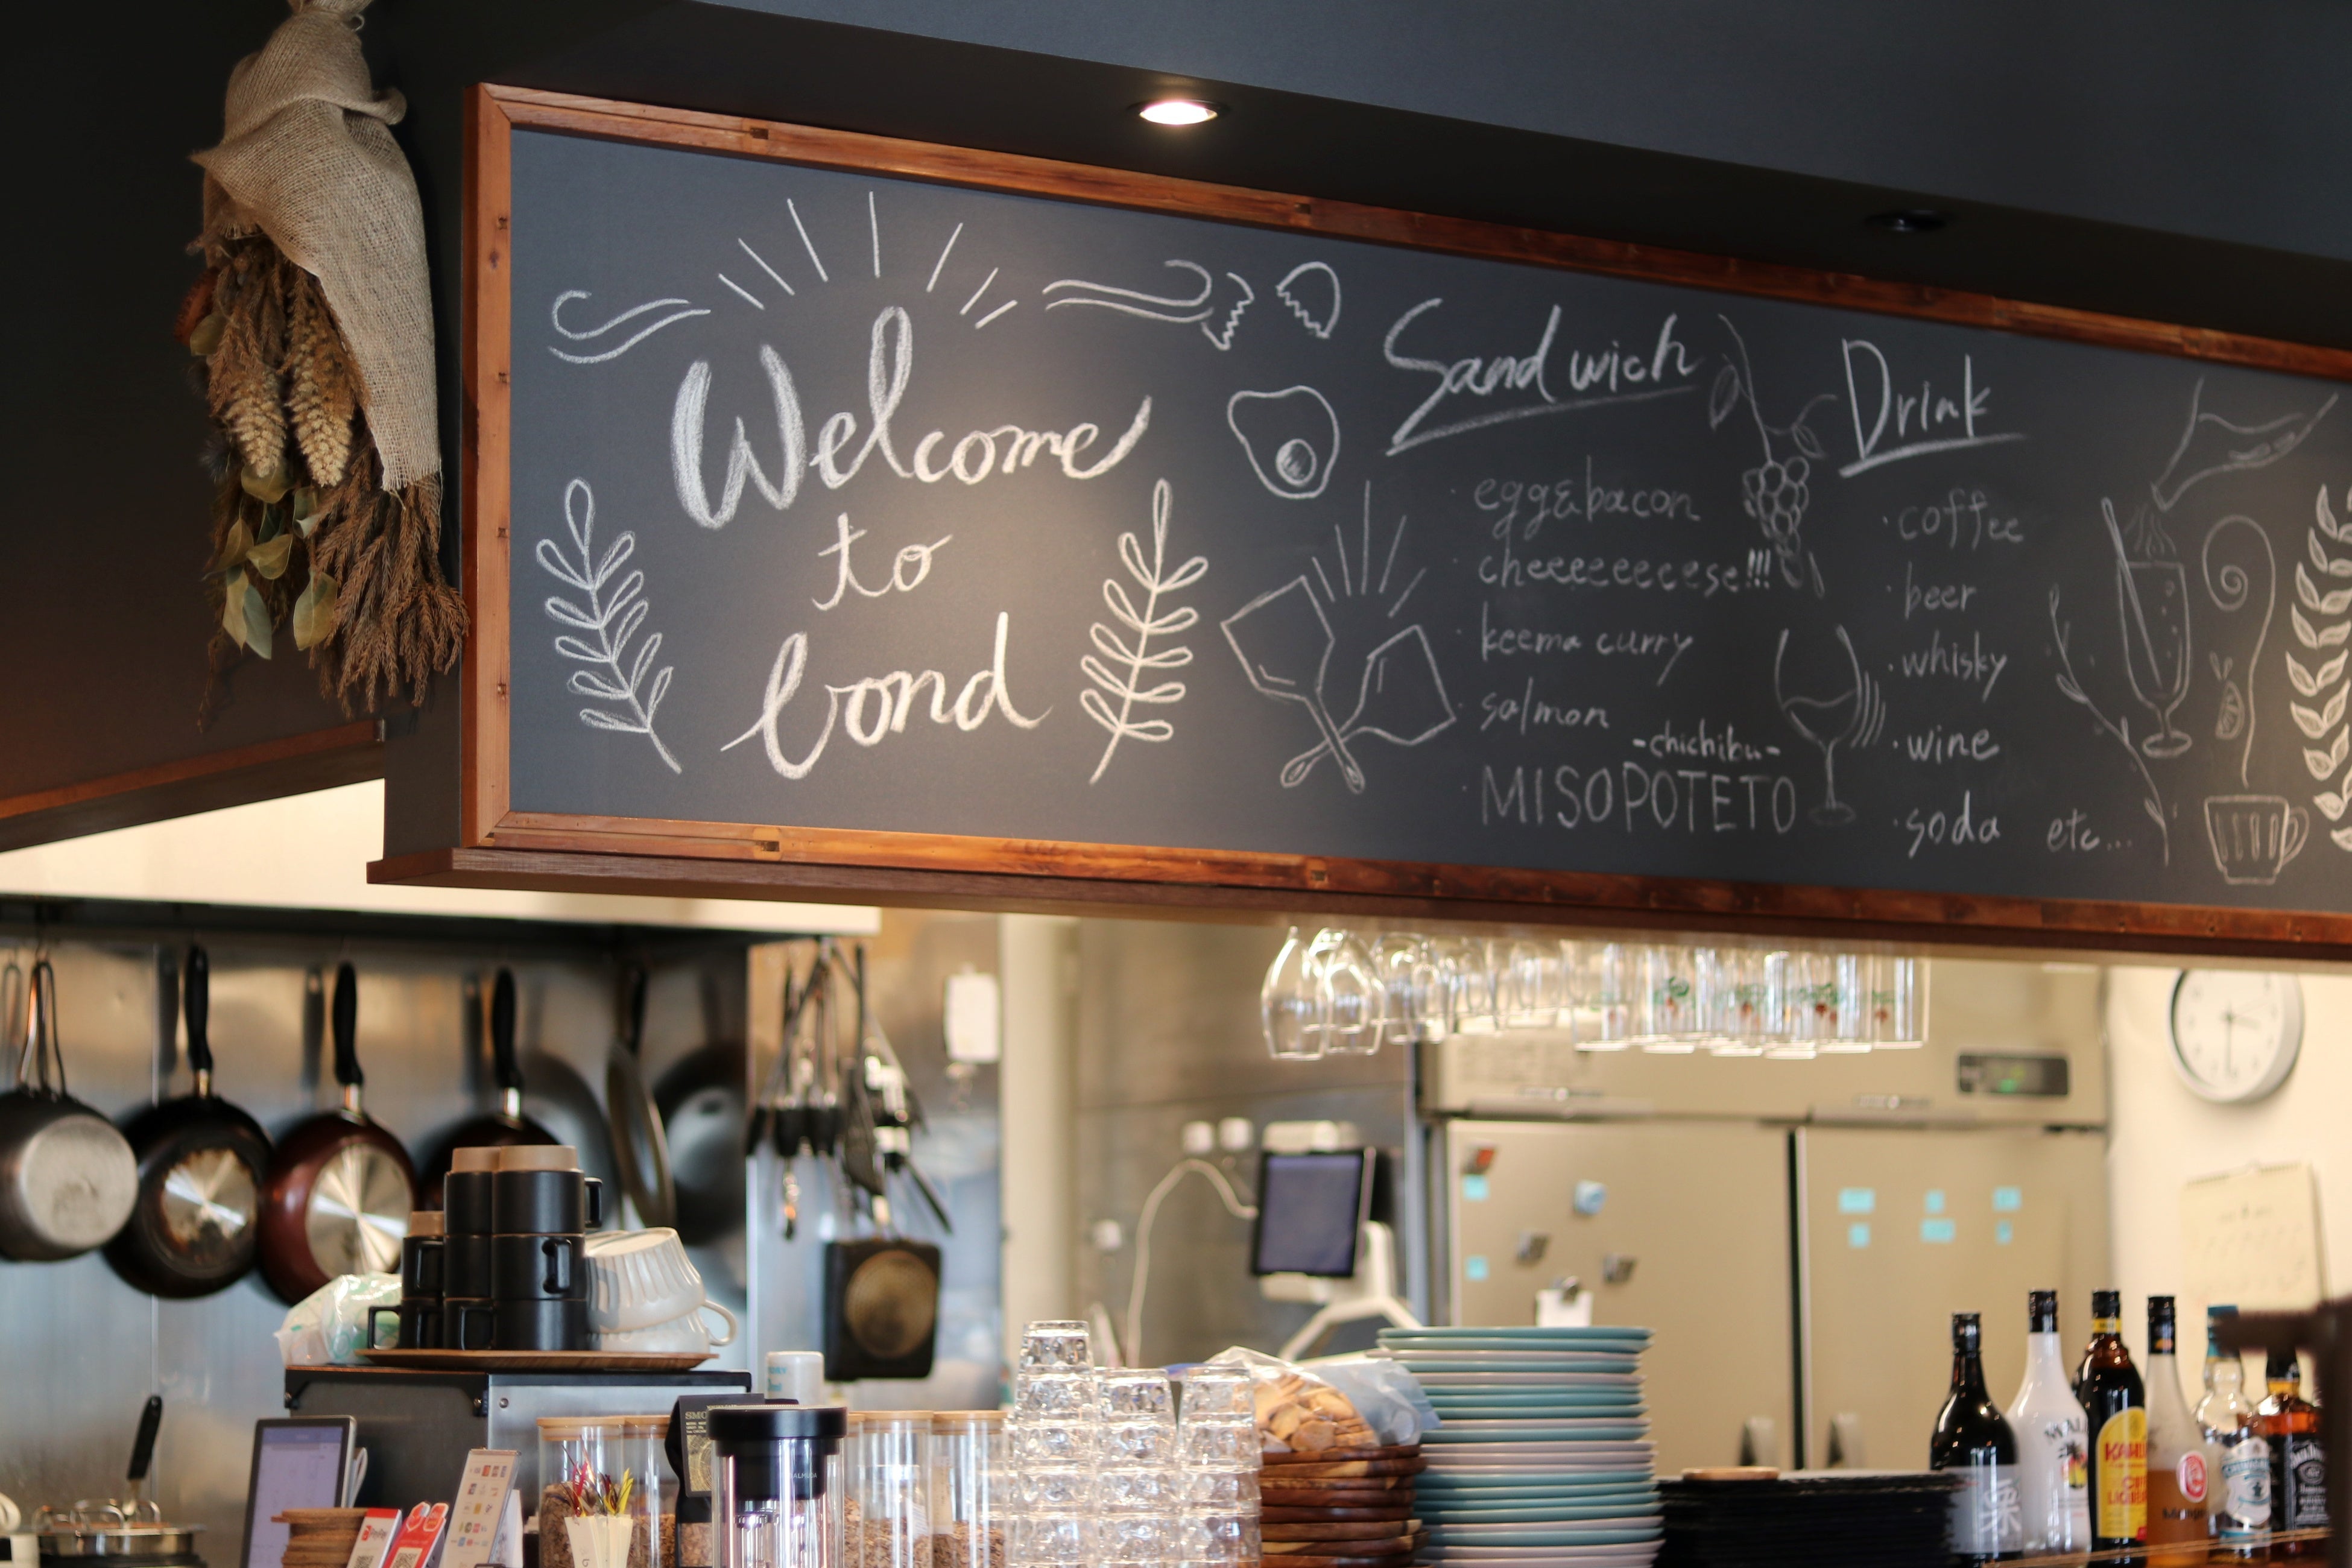 Welcome
to
bond
Sandwich
· egg&bacon
· cheeeeeeeese!!!
· keema curry
· salmon
-chichibu-
· MISOPOTETO
Drink
· coffee
· beer
· whisky
· wine
· soda etc...
KAHLÚA